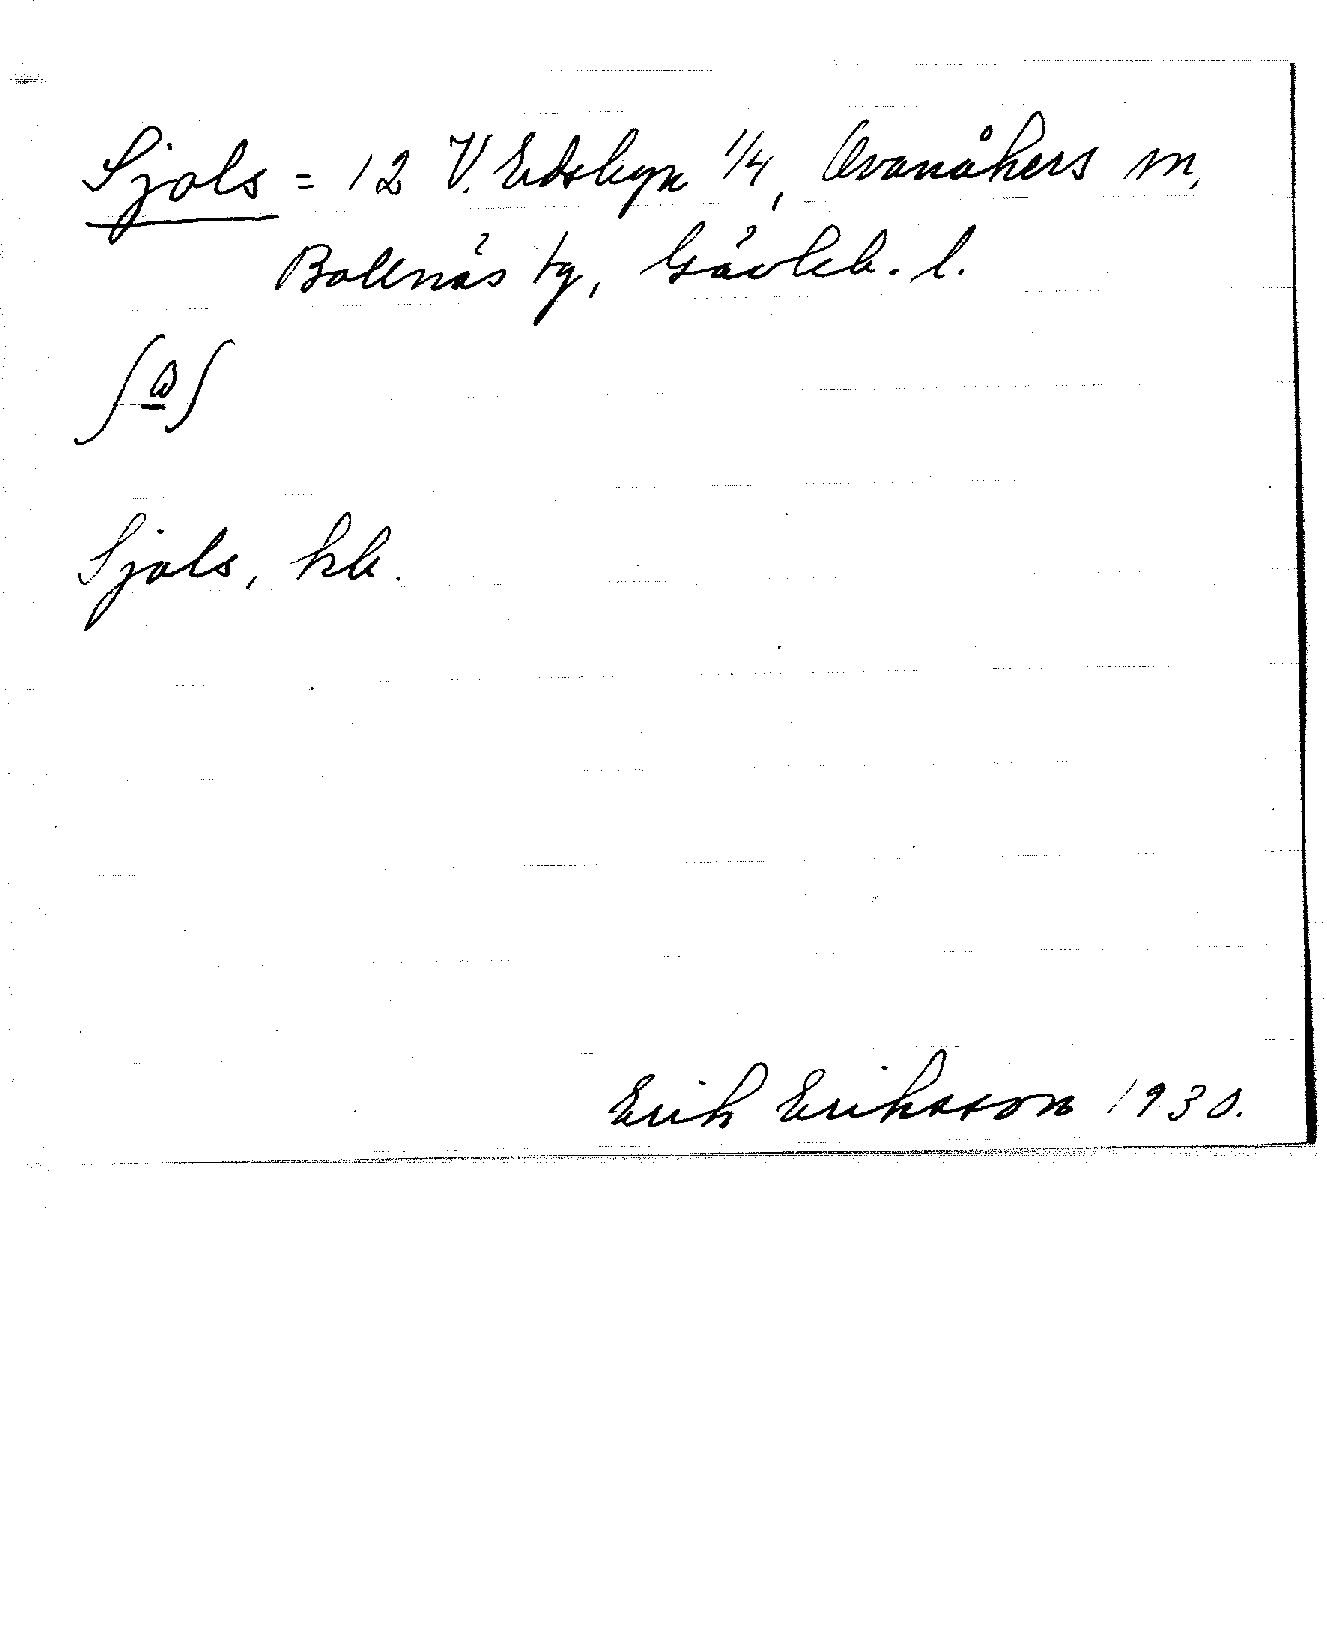 Sjols = 12 V. Edsbyn 1/4, Ovanåkers sn,
Bollnäs tg, Gävleb. l.
Sjols, kb.
Erik Eriksson 1930.